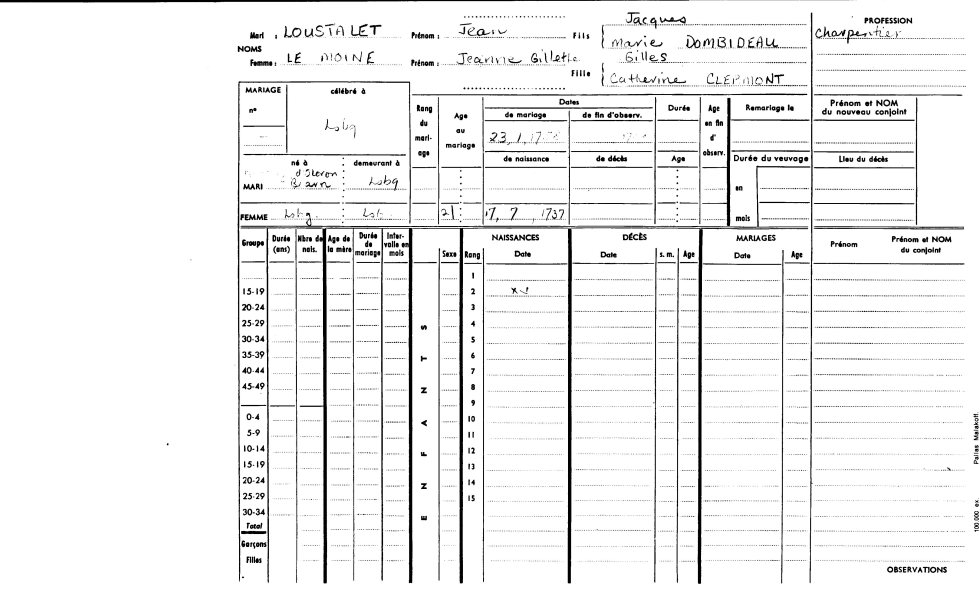 Jacques
PROFESSION
Mari : LOUSTALET Prénom : Jean Fils Marie DOMBIDEAU Charpentier
NOMS
Femme : LE MOINE Prénom : Jeanne Gillette Fille Gilles
Catherine CLERMONT
MARIAGE célébré à
n° Lsbg
Rang du mari-age
Age au mariage
Dates
de mariage de fin d'observ.
23, 1, 
de naissance de décès
Durée
Age
Age en fin d' observ.
Remariage le
Durée du veuvage
en
mois
Prénom et NOM du nouveau conjoint
Lieu du décès
né à demeurant à
MARI d'Oloron Béarn Lsbg
FEMME Lsbg Lsb 21 17, 7, 1737
Groupe Durée (ans) Nbre de nais. Age de la mère Durée de mariage Inter-valle en mois
ENFANTS
Sexe Rang
NAISSANCES Date
DÉCÈS Date s. m. Age
MARIAGES Date Age
Prénom Prénom et NOM du conjoint
1
15-19 2
20-24 3
25-29 4
30-34 5
35-39 6
40-44 7
45-49 8
9
0-4 10
5-9 11
10-14 12
15-19 13
20-24 14
25-29 15
30-34
Total
Garçons
Filles
OBSERVATIONS
100.000 ex. Pallas Malakoff.